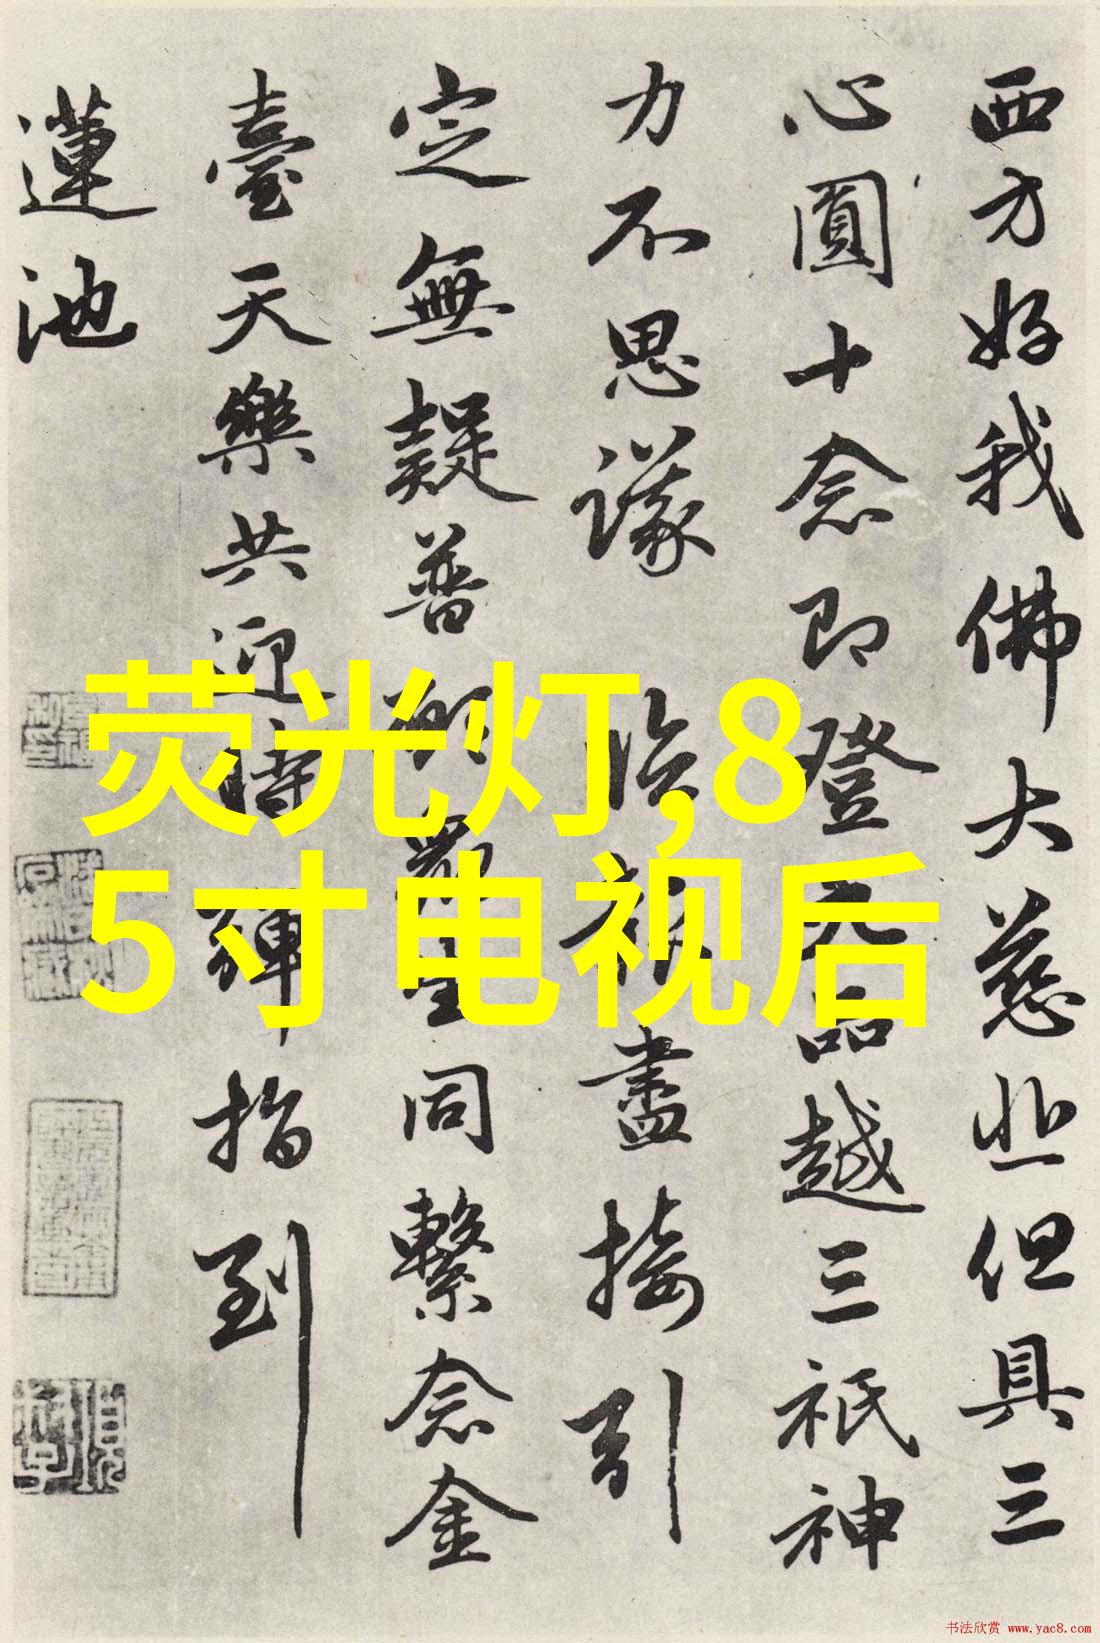 西方好我佛大慈悲但具三
心圓十念即登九品越三祇神
力不思議 臨報盡接引
定無疑普願眾生同繫念金
臺天樂共迎時彈指到
蓮池
荧光灯,8
5寸电视后
书法欣赏 www.yac8.com